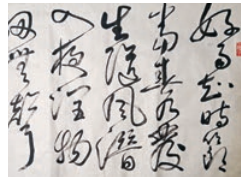 好雨知時節
當春乃發
生隨風潛
入夜潤物
細無聲